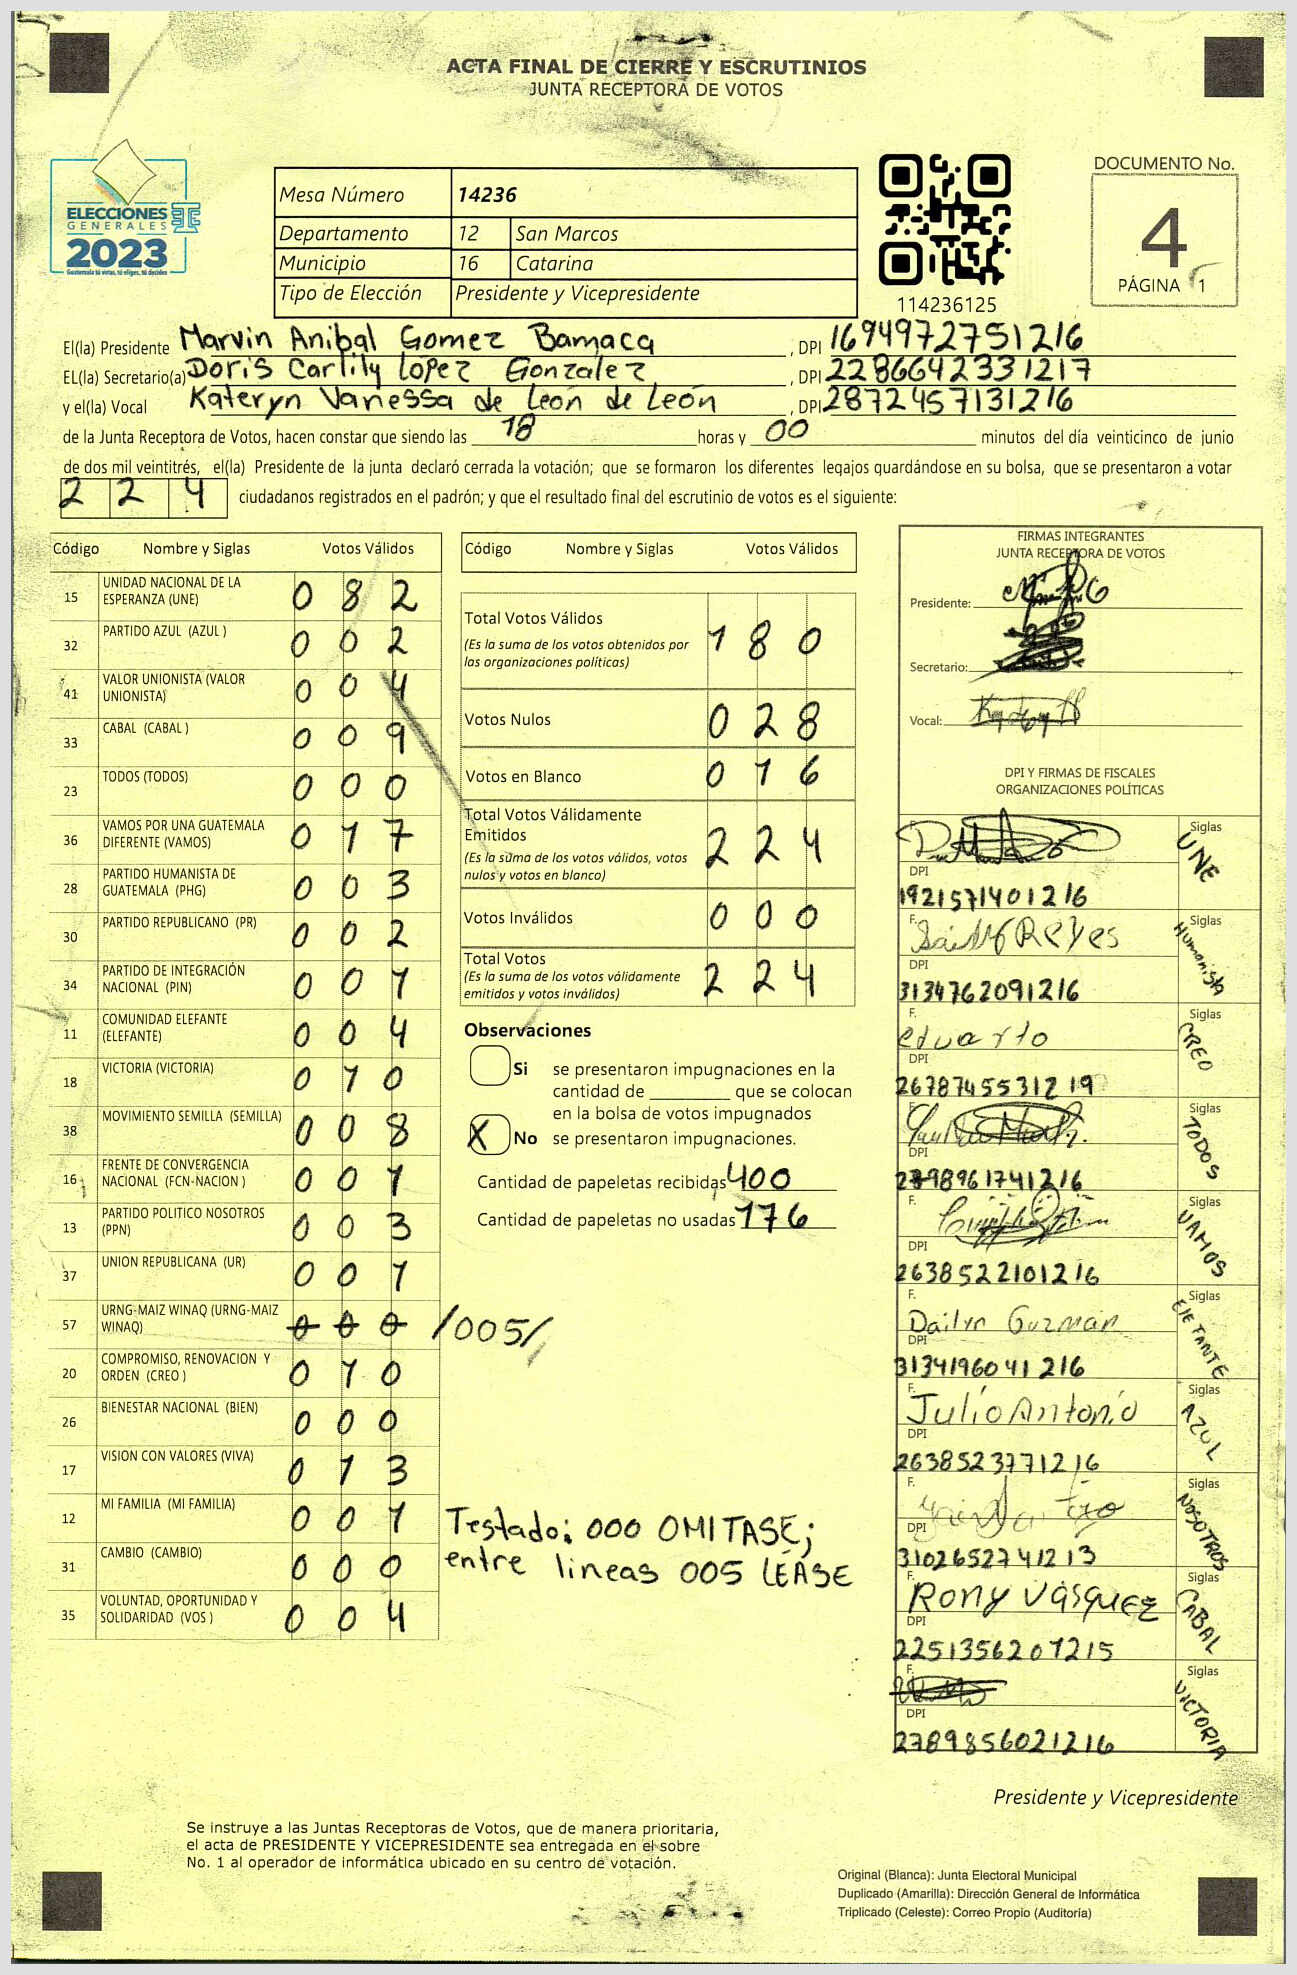 ACTA FINAL DE CIERRE Y ESCRUTINIOS
JUNTA RECEPTORA DE VOTOS
ELECCIONES
GENERALES
2023
Guatemala tú votas, tú eliges, tú decides
Mesa Número 14236
Departamento 12 San Marcos
Municipio 16 Catarina
Tipo de Elección Presidente y Vicepresidente
114236125
DOCUMENTO No.
4
PÁGINA 1
El(la) Presidente Marvin Anibal Gomez Bamaca , DPI 1694972751216
EL(la) Secretario(a) Doris Carlily Lopez Gonzalez , DPI 2286642331217
y el(la) Vocal Kateryn Vanessa de León de León , DPI 2872457131216
de la Junta Receptora de Votos, hacen constar que siendo las 18 horas y 00 minutos del día veinticinco de junio
de dos mil veintitrés, el(la) Presidente de la junta declaró cerrada la votación; que se formaron los diferentes legajos quardándose en su bolsa, que se presentaron a votar
2 2 4 ciudadanos registrados en el padrón; y que el resultado final del escrutinio de votos es el siguiente:
Código Nombre y Siglas Votos Válidos
15 UNIDAD NACIONAL DE LA ESPERANZA (UNE) 0 8 2
32 PARTIDO AZUL (AZUL ) 0 0 2
41 VALOR UNIONISTA (VALOR UNIONISTA) 0 0 4
33 CABAL (CABAL ) 0 0 9
23 TODOS (TODOS) 0 0 0
36 VAMOS POR UNA GUATEMALA DIFERENTE (VAMOS) 0 1 7
28 PARTIDO HUMANISTA DE GUATEMALA (PHG) 0 0 3
30 PARTIDO REPUBLICANO (PR) 0 0 2
34 PARTIDO DE INTEGRACIÓN NACIONAL (PIN) 0 0 1
11 COMUNIDAD ELEFANTE (ELEFANTE) 0 0 4
18 VICTORIA (VICTORIA) 0 1 0
38 MOVIMIENTO SEMILLA (SEMILLA) 0 0 8
16 FRENTE DE CONVERGENCIA NACIONAL (FCN-NACION ) 0 0 1
13 PARTIDO POLITICO NOSOTROS (PPN) 0 0 3
37 UNION REPUBLICANA (UR) 0 0 1
57 URNG-MAIZ WINAQ (URNG-MAIZ WINAQ) 0 0 0 /005/
20 COMPROMISO, RENOVACION Y ORDEN (CREO ) 0 1 0
26 BIENESTAR NACIONAL (BIEN) 0 0 0
17 VISION CON VALORES (VIVA) 0 1 3
12 MI FAMILIA (MI FAMILIA) 0 0 1
31 CAMBIO (CAMBIO) 0 0 0
35 VOLUNTAD, OPORTUNIDAD Y SOLIDARIDAD (VOS ) 0 0 4
Código Nombre y Siglas Votos Válidos
Total Votos Válidos 1 8 0
(Es la suma de los votos obtenidos por
las organizaciones políticas)
Votos Nulos 0 2 8
Votos en Blanco 0 1 6
Total Votos Válidamente
Emitidos 2 2 4
(Es la suma de los votos válidos, votos
nulos y votos en blanco)
Votos Inválidos 0 0 0
Total Votos 2 2 4
(Es la suma de los votos válidamente
emitidos y votos inválidos)
Observaciones
Si se presentaron impugnaciones en la
cantidad de ________ que se colocan
en la bolsa de votos impugnados
X No se presentaron impugnaciones.
Cantidad de papeletas recibidas 400
Cantidad de papeletas no usadas 176
Testado: 000 OMITASE;
entre lineas 005 LÉASE
FIRMAS INTEGRANTES
JUNTA RECEPTORA DE VOTOS
Presidente:
Secretario:
Vocal:
DPI Y FIRMAS DE FISCALES
ORGANIZACIONES POLÍTICAS
F. Siglas UNE
DPI
1921571401216
F. Reyes Siglas Humanista
DPI
3134762091216
F. eduardo Siglas CREO
DPI
2678745531219
F. Siglas TODOS
DPI
2798961741216
F. Siglas VAMOS
DPI
2638522101216
F. Dailyn Guzman Siglas ELEFANTE
DPI
3134196041216
F. Julio Antonio Siglas AZUL
DPI
2638523771216
F. Siglas NOSOTROS
DPI
3102652741213
F. Rony Vásquez Siglas CABAL
DPI
2251356201215
F. Siglas VICTORIA
DPI
2789856021216
Presidente y Vicepresidente
Se instruye a las Juntas Receptoras de Votos, que de manera prioritaria,
el acta de PRESIDENTE Y VICEPRESIDENTE sea entregada en el sobre
No. 1 al operador de informática ubicado en su centro de votación.
Original (Blanca): Junta Electoral Municipal
Duplicado (Amarilla): Dirección General de Informática
Triplicado (Celeste): Correo Propio (Auditoría)